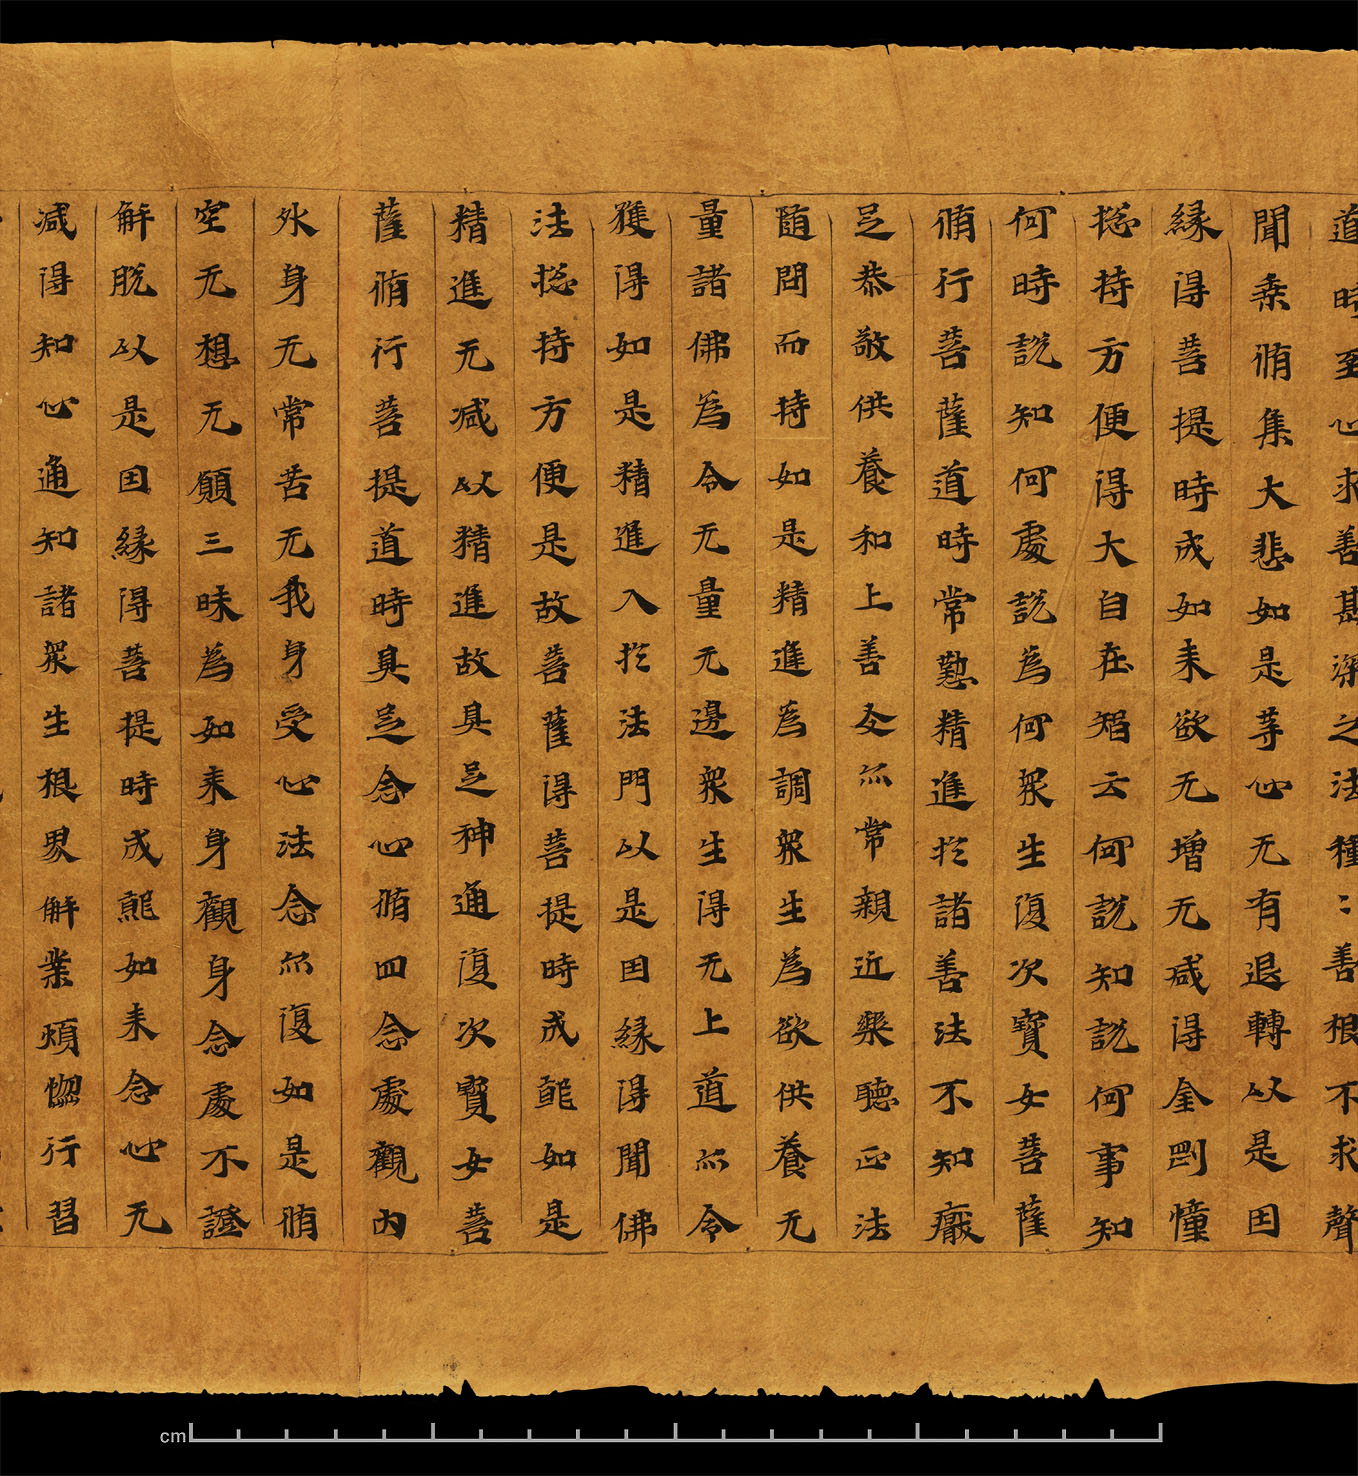 道時至心求善甚深之法種〻善根不求聲
聞乘脩集大悲如是等心无有退轉以是因
緣得菩提時成如来欲无增无减得金剛憧
捴持方便得大自在智云何說知說何事知
何時說知何處說為何衆生復次寶女菩薩
脩行菩薩道時常懃精進於諸善法不知厭
足恭敬供養和上善友亦常親近樂聽正法
随問而持如是精進為調衆生為欲供養无
量諸佛為令无量无邊衆生得无上道亦令
獲得如是精進入於法門以是因緣得聞佛
法捴持方便是故菩薩得菩提時成就如是
精進无减以精進故具足神通復次寶女菩
薩脩行菩提道時具足念心脩四念處觀内
外身无常苦无我身受心法念亦復如是脩
空无想无願三昧為如来身觀身念處不證
解脫以是因緣得菩提時成就如来念心无
减得知心通知諸衆生根界解業煩惱行習